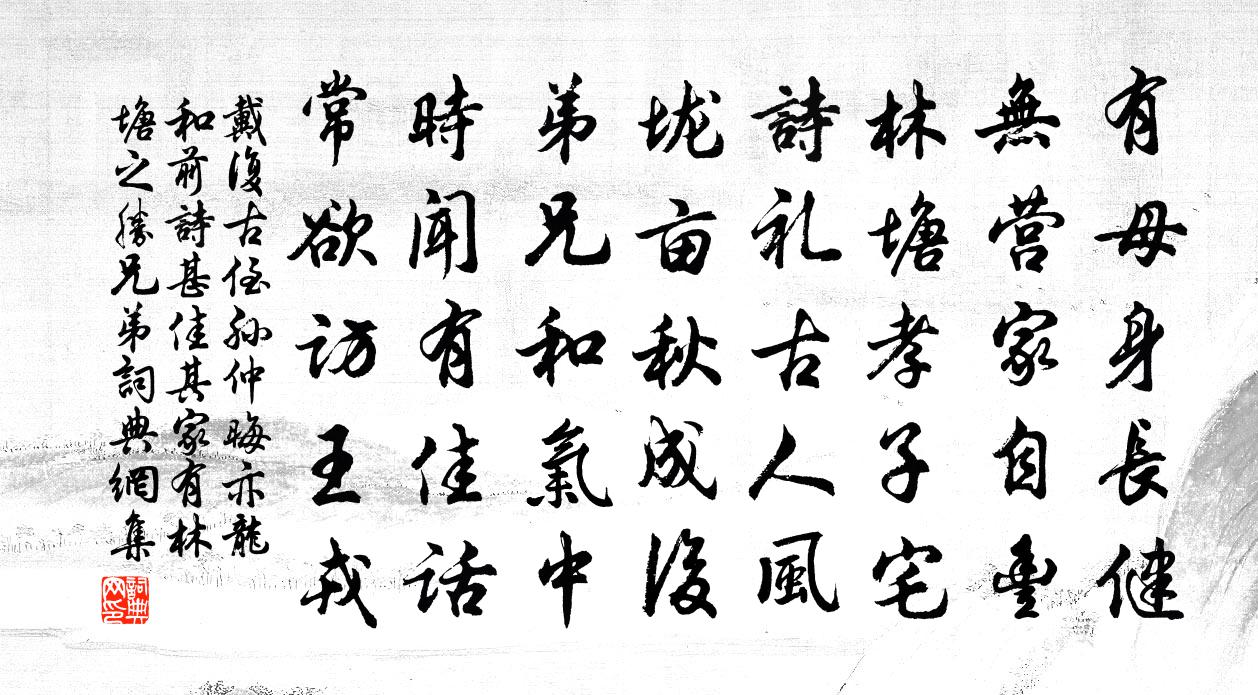 有母身長健
無营家自豊
林塘孝子宅
詩礼古人風
垅亩秋成後
弟兄和氣中
時聞有佳話
常欲訪王戎
戴復古侄孙仲晦亦龍
和前詩甚佳其家有林
塘之勝兄弟詞典網集
詞典网印